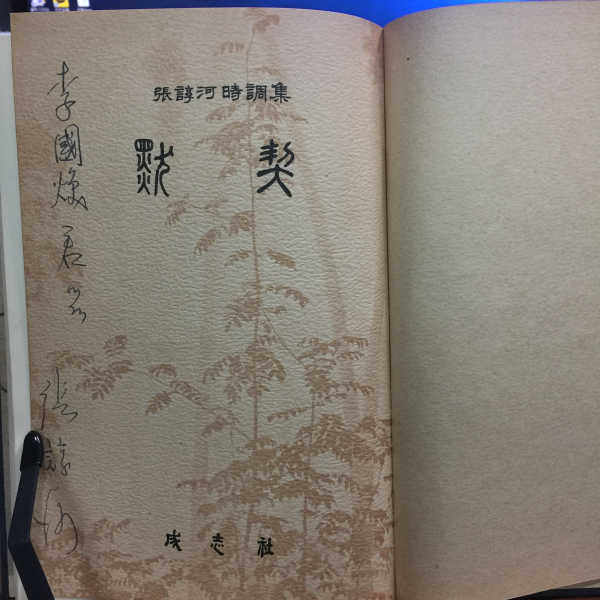 張諄河時調集
默契
成志社
李國煥君
張諄河